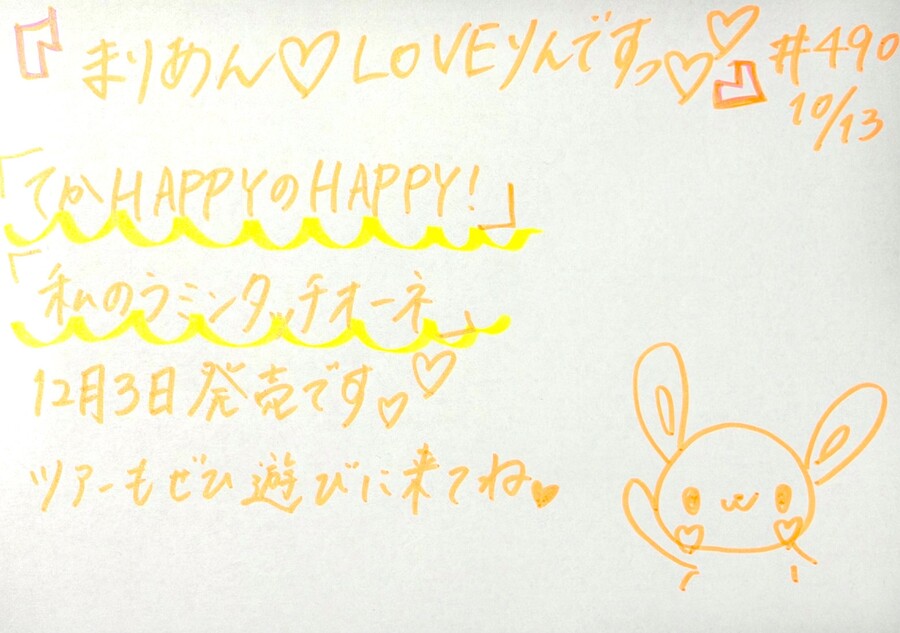 『まりあん♡LOVEりんですっ♡♡』#490
10/13
「てかHAPPYのHAPPY!」
「私のラミンタッチオーネ」
12月3日発売です♡♡
ツアーもぜひ遊びに来てね♥